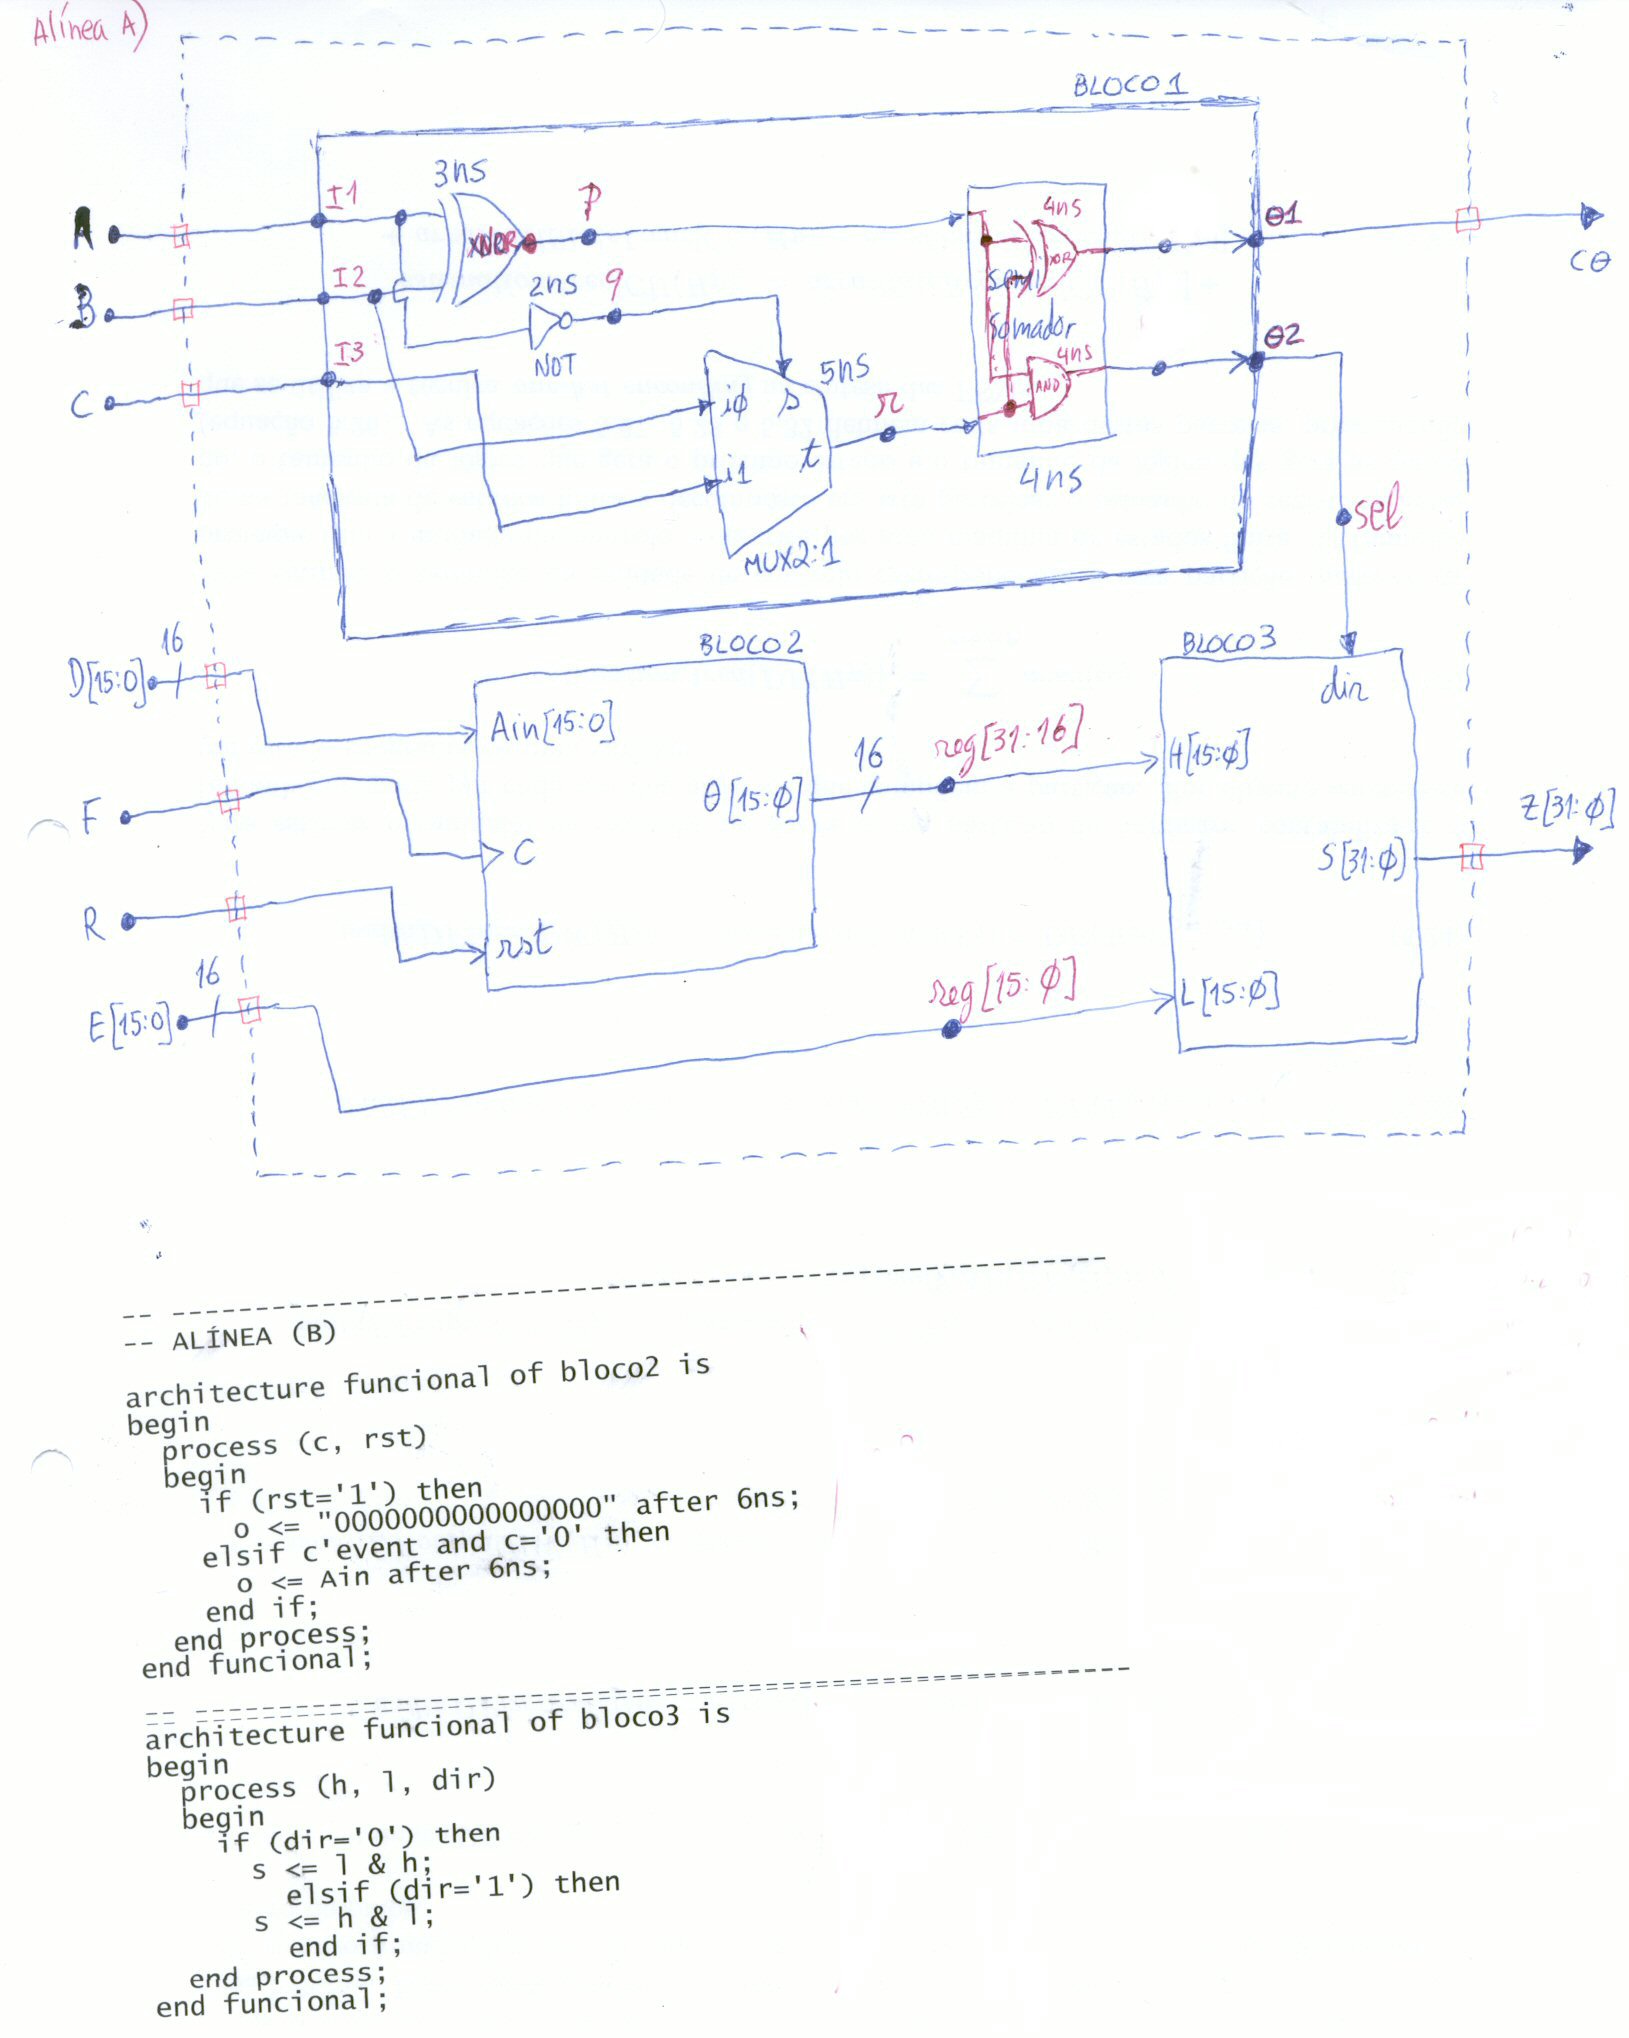 Alínea A)
BLOCO1
3ns
I1
P
4ns
θ1
A
XNOR
XOR
Cθ
I2
2ns
q
semi
B
somador
θ2
I3
NOT
5ns
4ns
AND
C
iφ
s
r
t
i1
4ns
sel
MUX2:1
16
BLOCO2
BLOCO3
D[15:0]
dir
Ain[15:0]
reg[31:16]
16
H[15:φ]
θ[15:φ]
Z[31:φ]
F
C
S[31:φ]
R
rst
16
reg[15:φ]
L[15:φ]
E[15:0]
-- --------------------------------------------------------
-- ALÍNEA (B)
architecture funcional of bloco2 is
begin
process (c, rst)
begin
if (rst='1') then
o <= "0000000000000000" after 6ns;
elsif c'event and c='0' then
o <= Ain after 6ns;
end if;
end process;
end funcional;
-- --------------------------------------------------------
-- ========================================================
architecture funcional of bloco3 is
begin
process (h, l, dir)
begin
if (dir='0') then
s <= l & h;
elsif (dir='1') then
s <= h & l;
end if;
end process;
end funcional;